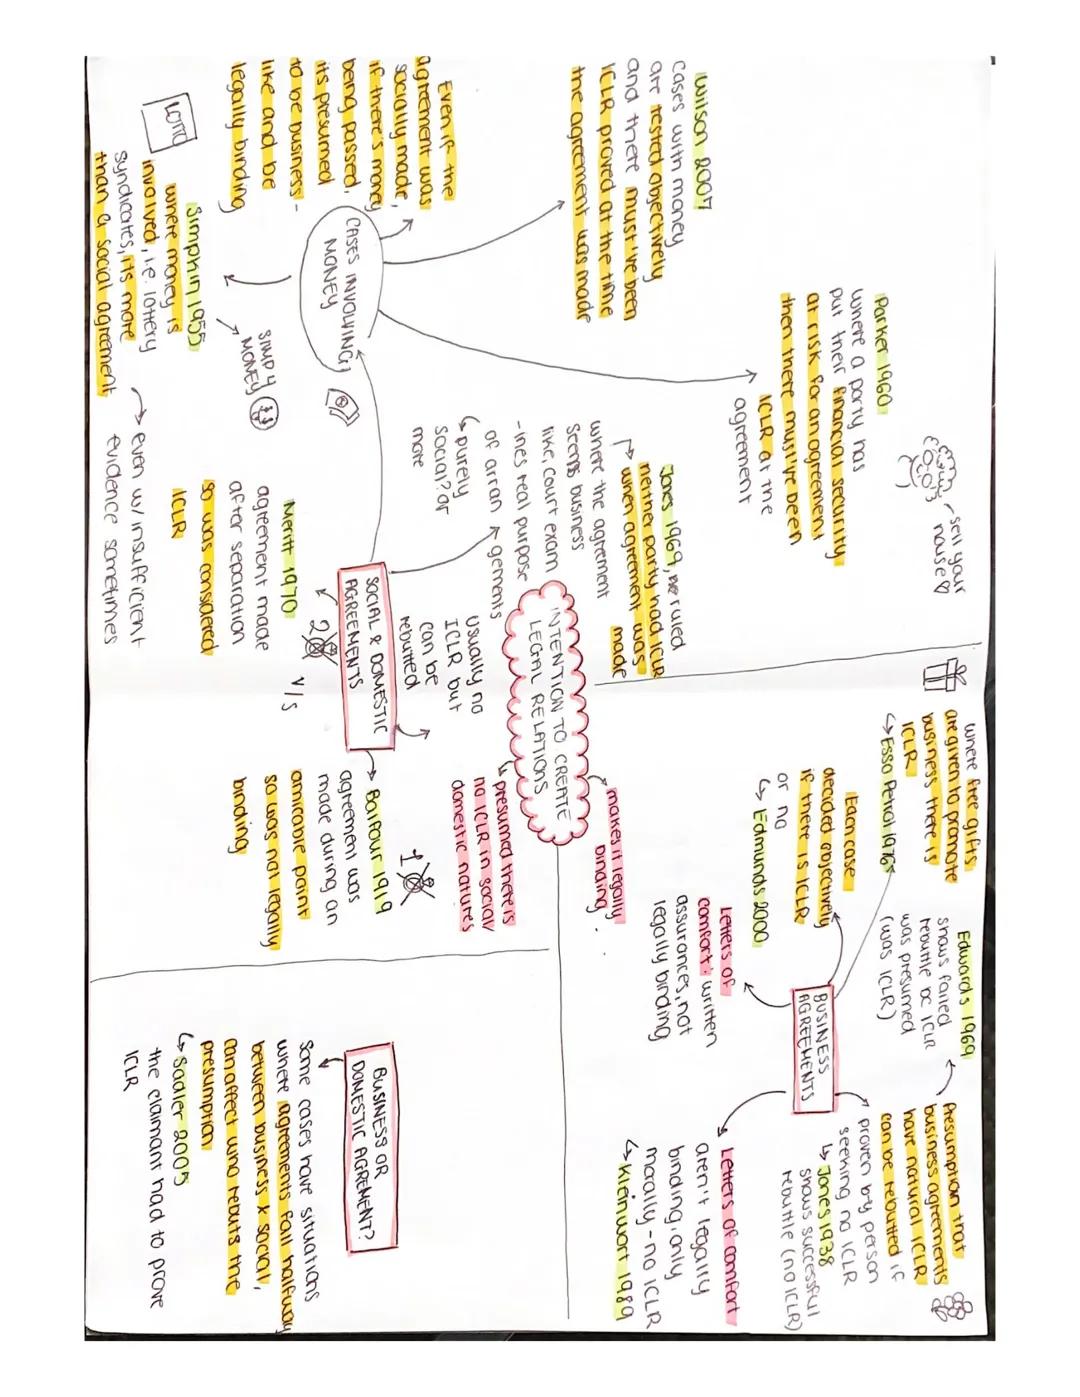 INTENTION TO CREATE
LEGAL RELATIONS
makes it legally
binding.
↳ presumed there is
no ICLR in social/
domestic natures
Wilson 2007
cases with money
are tested objectively
and there must've been
ICLR proved at the time
the agreement was made
Parker 1960
where a party has
put their financial security
at risk for an agreement
then there must've been
ICLR at the
agreement
sell your
house
Even if the
agreement was
socially made,
if there's money
being passed,
its presumed
to be business-
like and be
legally binding
CASES INVOLVING
MONEY
LOTTO
Simpkin 1955
where money is
involved, i.e. lottery
syndicates, its more
than a social agreement
SIMP 4
MONEY
→ even w/ insufficient
evidence sometimes
Jones 1969, ruled
neither party had ICLR
when agreement was
made
where the agreement
seems business
like, court exam
-ines real purpose
of arran gements
↳ purely
social? or
more
SOCIAL & DOMESTIC
AGREEMENTS
usually no
ICLR but
can be
rebutted
Meritt 1970
agreement made
after separation
so was considered
ICLR
2
v/s
1
Balfour 1919
agreement was
made during an
amicable point
so was not legally
binding
where free gifts
are given to promote
business there is
ICLR
↳ Esso Petrol 1976
Each case
decided objectively
if there is ICLR
or no
↳ Edmunds 2000
Letters of
comfort: written
assurances, not
legally binding
BUSINESS
AGREEMENTS
Edwards 1969
shows failed
rebuttle bc ICLR
was presumed
(was ICLR)
Presumption that
business agreements
have natural ICLR
can be rebutted if
proven by person
seeking no ICLR
↳ Jones 1938
shows successful
rebuttle (no ICLR)
Letters of comfort
aren't legally
binding, only
morally - no ICLR
↳ Kleinwort 1989
BUSINESS OR
DOMESTIC AGREMENT?
Some cases have situations
where agreements fall halfway
between business & social,
can affect who rebuts the
presumption
↳ Sadler 2005
the claimant had to prove
ICLR